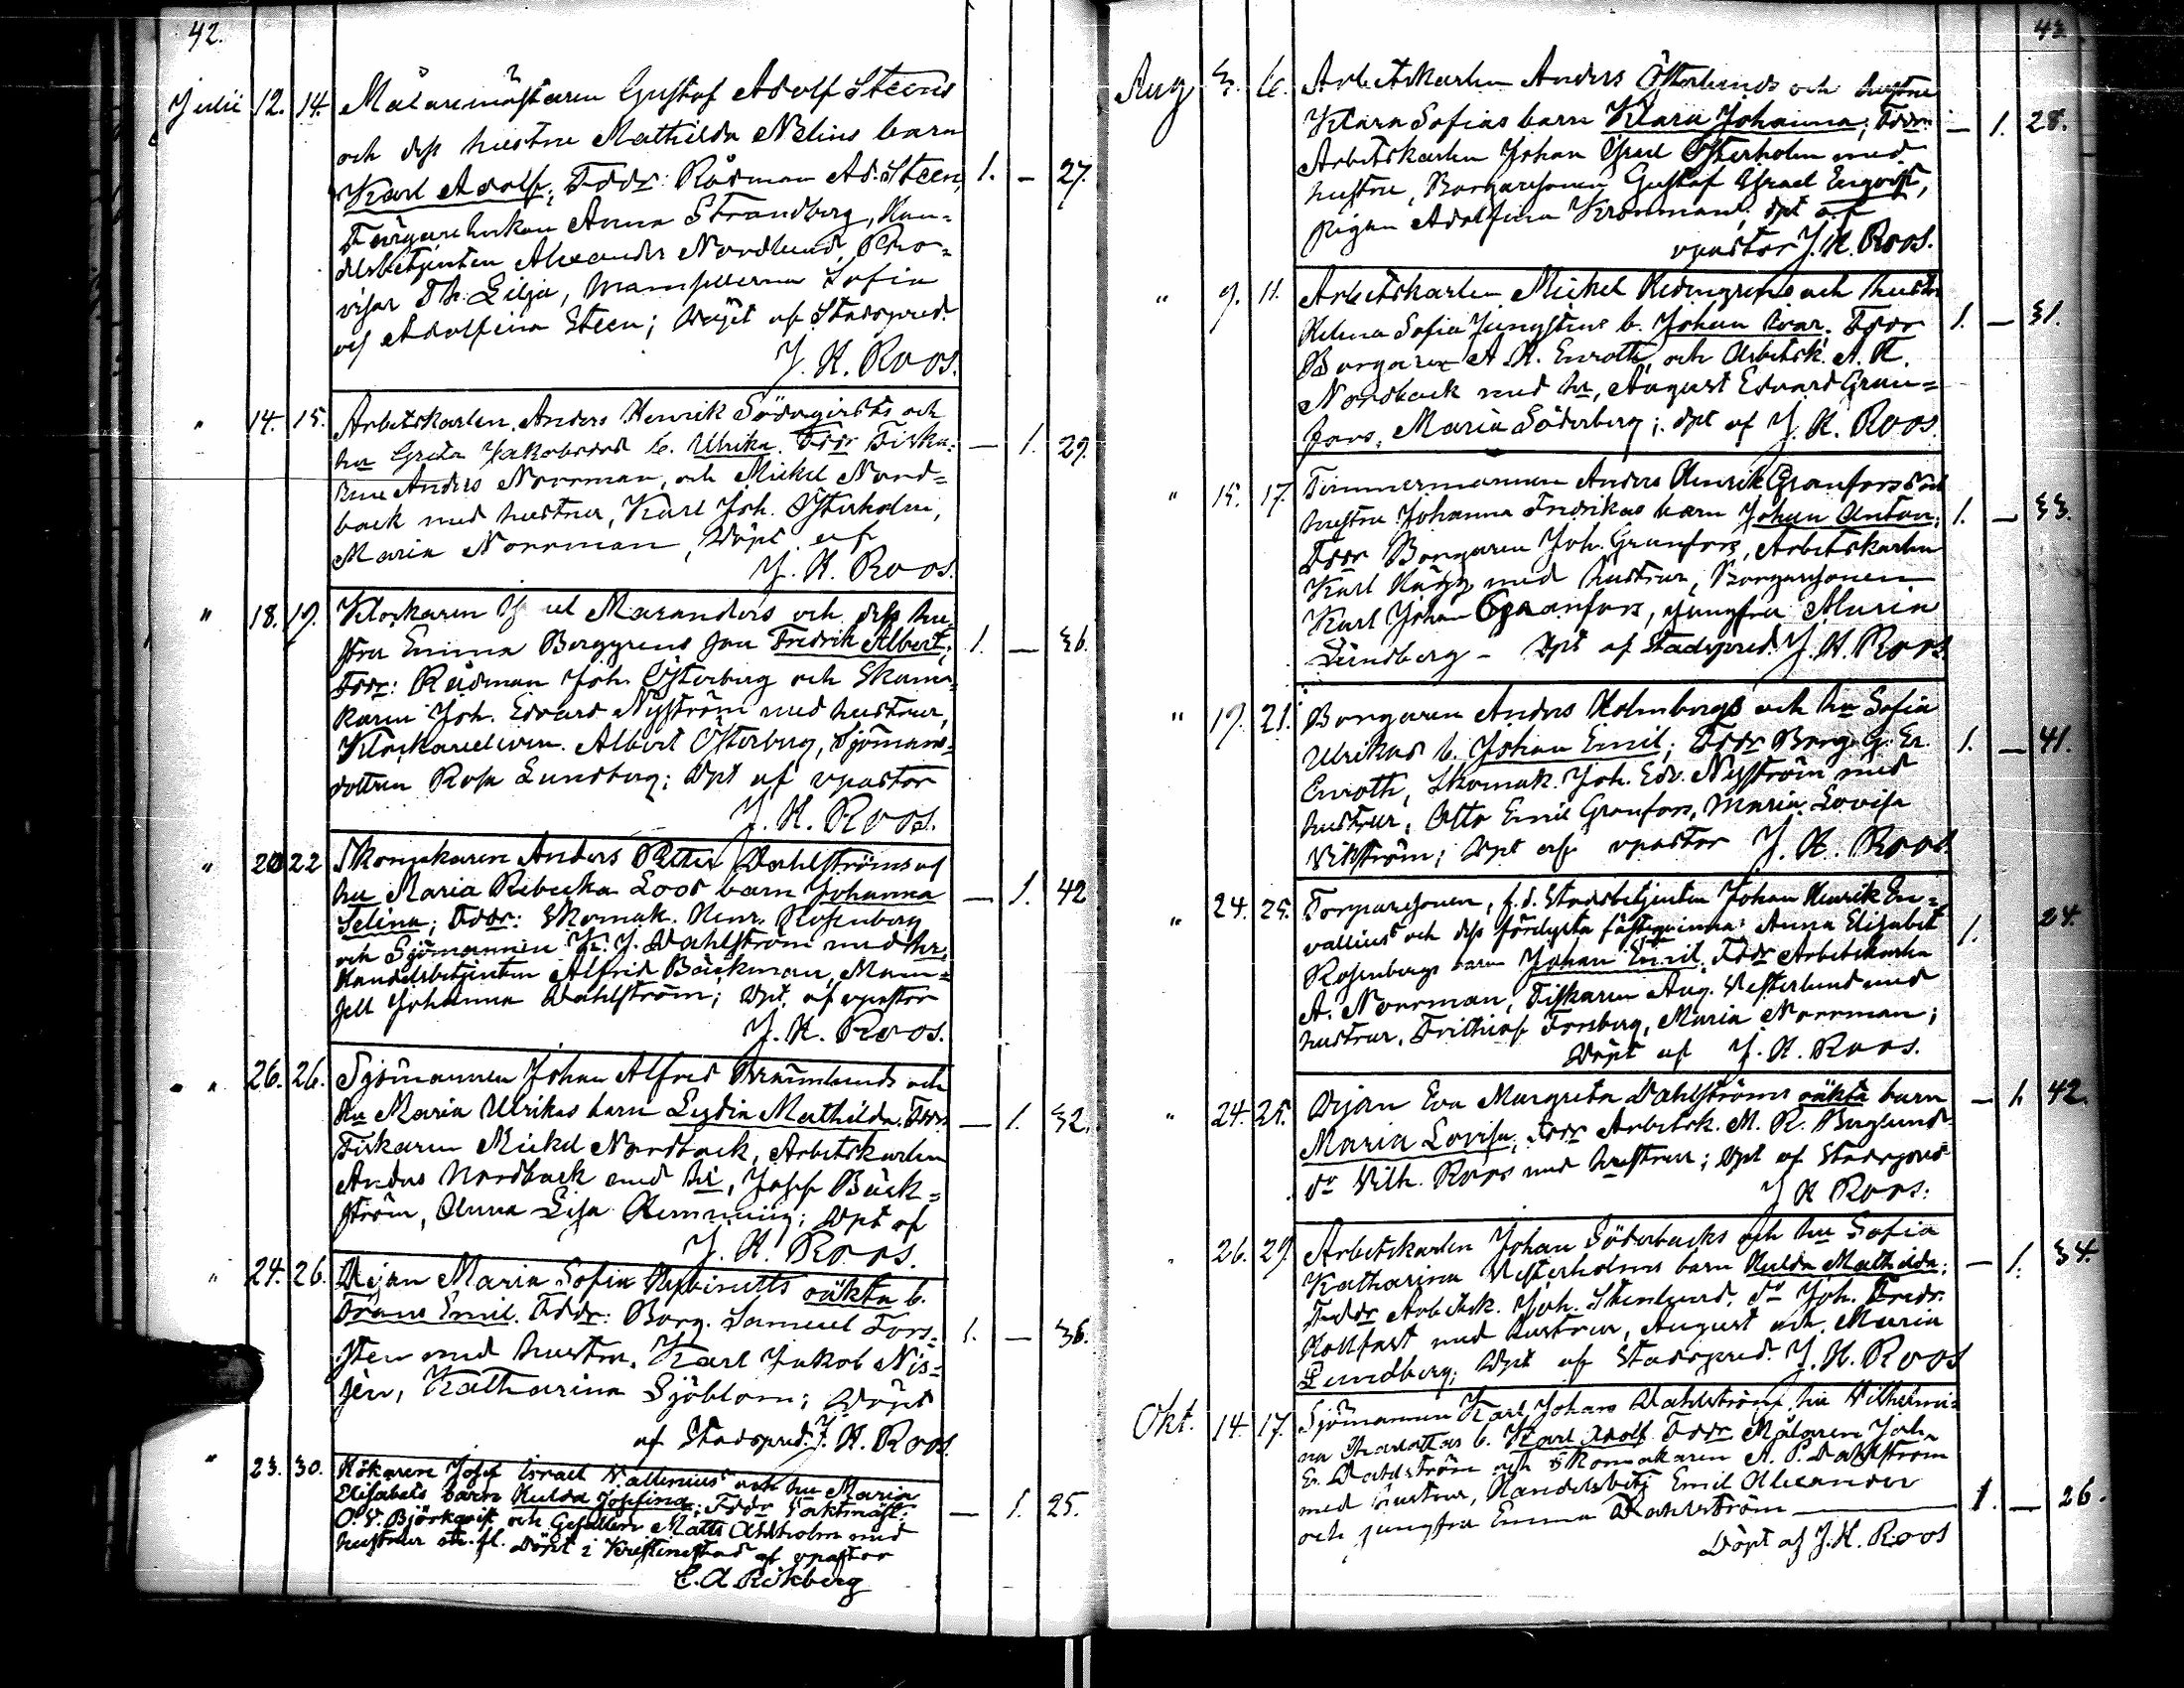 42.
Julii 12. 14. Målaremästaren Gustaf Adolf Steens
och dess hustru Mathilda Nelins barn
Karl Adolf; Fddr: Rådman Ad. Steen, 1. — 27.
Färgareenkan Anna Strandberg, Han=
delsbetjenten Alexander Nordlund, Pro=
visor Th. Lilja, mamsellerna Sofia
och Adolfina Steen; Döpt af Stadspred.
J. H. Roos.
" 14. 15. Arbetskarlen Anders Henrik och
hu Greta Jakobsdrs b. Ulrika. Fddr Fiska= — 1. 29.
Anders Norrman, och Mickel Nord=
back med hustrur, Karl Joh. Österholm,
Maria Norrman, Döpt af
J. H. Roos.
" 18. 19. Klockaren Maranders och dess hu=
stru Emma Berggrens son Fredrik Albert; 1. — 36.
Fddr: Rådman Joh. Österberg och Skoma=
karen Joh. Edvard Nyström med hustrur,
Klockareeleven Albert Österberg, Sjömans=
dottren Rosa Lundberg; Döpt af vpastor
J. H. Roos.
" 20 22 Skomakaren Anders Petter Dahlströms och
hu Maria Rebecka Loos barn Johanna — 1. 42
Selina; Fddr: Skomak. Henr. Rosenberg
och Sjömannen K. J. Dahlström med hr,
Handelsbetjenten Alfrid Bäckman, Mam=
sell Johanna Dahlström; Dpt. af vpastor
J. H. Roos.
" 26. 26. Sjömannen Johan Alfred Brännlunds och
hu Maria Ulrikas barn Lydia Mathilda. Fddr — 1. 32.
Fiskaren Mickel Nordback, Arbetskarlen
Anders Nordback med hr, Josef Bäck=
ström, Anna Lisa Hemming; Dpt af
J. H. Roos.
" 24. 26. Pigan Maria Sofia oäkta b.
Frans Emil. Fddr: Borg. Samuel Fors= 1. — 36.
sten med hustru, Karl Jakob Nis=
sén, Katharina Sjöblom; Döpt
af Stadspred. J. H. Roos.
" 23. 30. Hökaren Josef Israel Vallenius och hu Maria
Elisabets barn Hulda Josefina; Fddr Vaktmäst. — 1. 25.
O. V. Björkqvist och Gesällen Matts Ahlholm med
hustrur m. fl. Döpt i Kristinestad af vpastor
C. A. Rikberg
43.
Aug 3. 6. Arbetskarlen Anders Österlunds och hustru
Klara Sofias barn Klara Johanna; Fddr: — 1. 28.
Arbetskarlen Johan Israel Österholm med
hustru, Borgaresonen Gustaf Israel Engqvist,
pigan Adolfina Kronman; dpt af
vpastor J. H. Roos.
" 9. 11. Arbetskarlen Mickel Hedengrens och hustru
Helena Sofia Ljungströms b. Johan Ivar. Fddr 1. — 31.
Borgaren A. H. Enroth, och Arbetsk. A. H.
Nordback med hr, August Edvard Gran=
fors, Maria Söderberg; dpt af J. H. Roos.
" 15. 17. Timmermannen Anders Henrik Granfors's och
hustru Johanna Fredrikas barn Johan Anton; 1. — 33.
Fddr Borgaren Joh. Granfors, Arbetskarlen
Karl Hägg med hustrur, Borgaresonen
Karl Johan Granfors, jungfru Maria
Lundberg — Dpt af Stadspred. J. H. Roos.
" 19. 21. Borgaren Anders Holmbergs och hu Sofia
Ulrikas b. Johan Emil; Fddr Borg. G. Er. 1. — 41.
Enroth, Skomak. Joh. Edv. Nyström med
hustrur, Otto Emil Granfors, Maria Lovisa
Vikström; Dpt af vpastor J. H. Roos.
" 24. 25. Torparesonen, f. d. Stadsbetjenten Johan Henrik En=
vallius's och dess förelysta fästeqvinna Anna Elisabet 1. 24.
Rosenbergs barn Johan Emil. Fddr Arbetskarlen
A. Norrman, Fiskaren Aug. Vesterlund med
hustrur, Frithiof Forsberg, Maria Norrman;
Döpt af J. H. Roos.
" 24. 25. Pigan Eva Margreta Dahlströms oäkta barn — 1. 42.
Maria Lovisa. Fddr Arbetsk. M. R. Berglund
do Vilh. Roos med hustrur; Dpt af Stadspred
J H Roos.
" 26. 29. Arbetskarlen Johan Söderbacks och hu Sofia
Katharina Vesterholms barn Hulda Mathilda; — 1. 34.
Fddr Arbetsk. Joh. Stenlund, do Joh. Fredr.
Hollfast med hustrur, August och Maria
Lundberg; Dpt af Stadspred. J. H. Roos
Okt. 14. 17. Sjömannen Karl Johan Dahlströms hu Vilhelmi=
na Charlottas b. Karl Adolf. Fddr Målaren Joh.
E. Dahlström och Skomakaren A. P. Dahlström
med hustrur, Handelsbetj Emil Alexander
och jungfru Emma Dahlström — 1. — 26.
Döpt af J. H. Roos